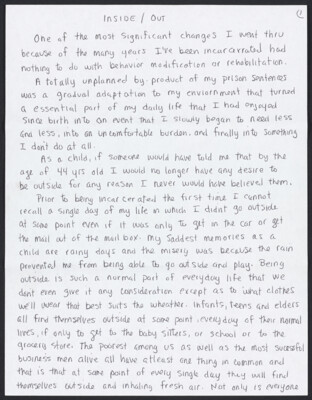 INSIDE / OUT
One of the most significant changes I went thru
because of the many years I've been incarcerated had
nothing to do with behavior modification or rehabilitation.
A totally unplanned by-product of my prison sentences
was a gradual adaptation to my enviornment that turned
a essential part of my daily life that I had enjoyed
since birth into an event that I slowly began to need less
and less, into an uncomfortable burden, and finally into something
I don't do at all.
As a child, if someone would have told me that by the
age of 44 yrs old I would no longer have any desire to
be outside for any reason I never would have believed them.
Prior to being incarcerated the first time I cannot
recall a single day of my life in which I didnt go outside
at some point even if it was only to get in the car or get
the mail out of the mail box. My saddest memories as a
child are rainy days and the misery was because the rain
prevented me from being able to go outside and play. Being
outside is such a normal part of everyday life that we
dont even give it any consideration except as to what clothes
we'll wear that best suits the wheather. Infants, teens and elders
all find themselves outside at some point, everyday of their normal
lives, if only to get to the baby sitters, or school or to the
grocery store. The poorest among us as well as the most successful
business men alive all have atleast one thing in common and
that is that at some point of every single day they will find
themselves outside and inhaling fresh air. Not only is everyone